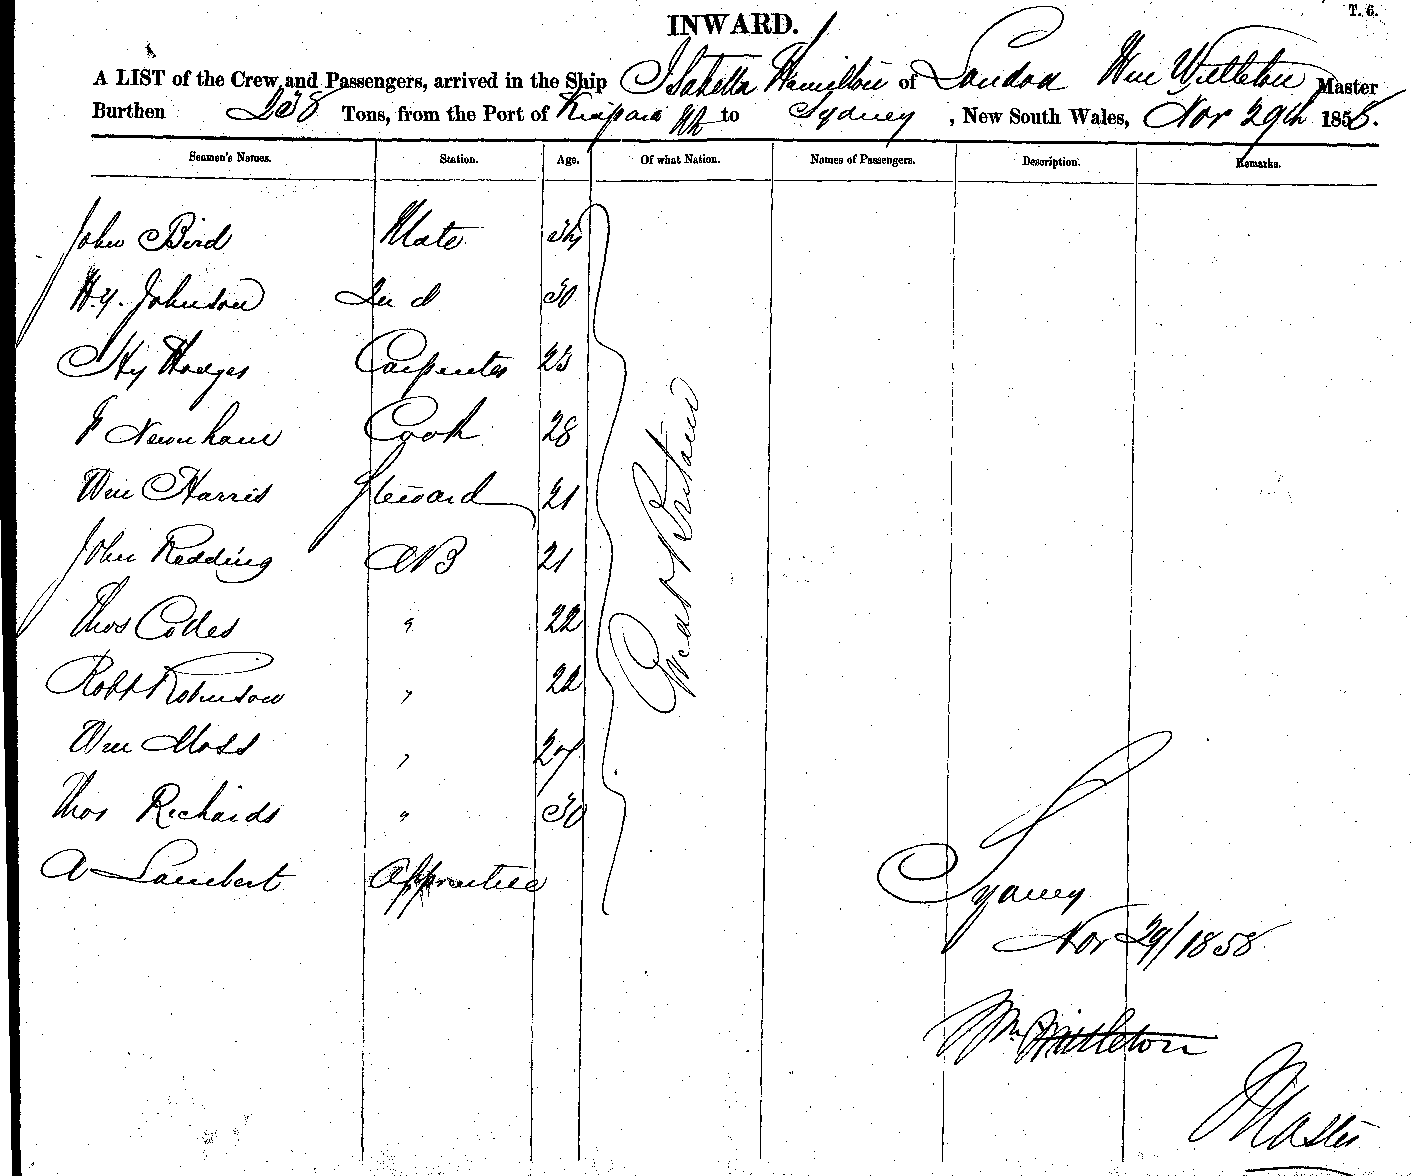 T. 6.
INWARD.
A LIST of the Crew and Passengers, arrived in the Ship Isabella Hamilton of London Wm Wittleton Master
Burthen Tons, from the Port of Kaipara to Sydney, New South Wales, Nov 29th 1858.
Seamen's Names. Station. Age. Of what Nation. Names of Passengers. Description. Remarks.
John Bird Mate
Hy. Johnson 2nd 30
Hy Hodges Carpenter 23
F Newnham Cook 28
Wm Harris Steward 21
John Redding AB 21
Thos Coles " 22
Robt Robinson " 22
Wm Moss " 27
Thos Richards " 30
A Lambert Apprentice
Great Britain
Sydney
Nov 29/1858
Wm Wittleton
Master